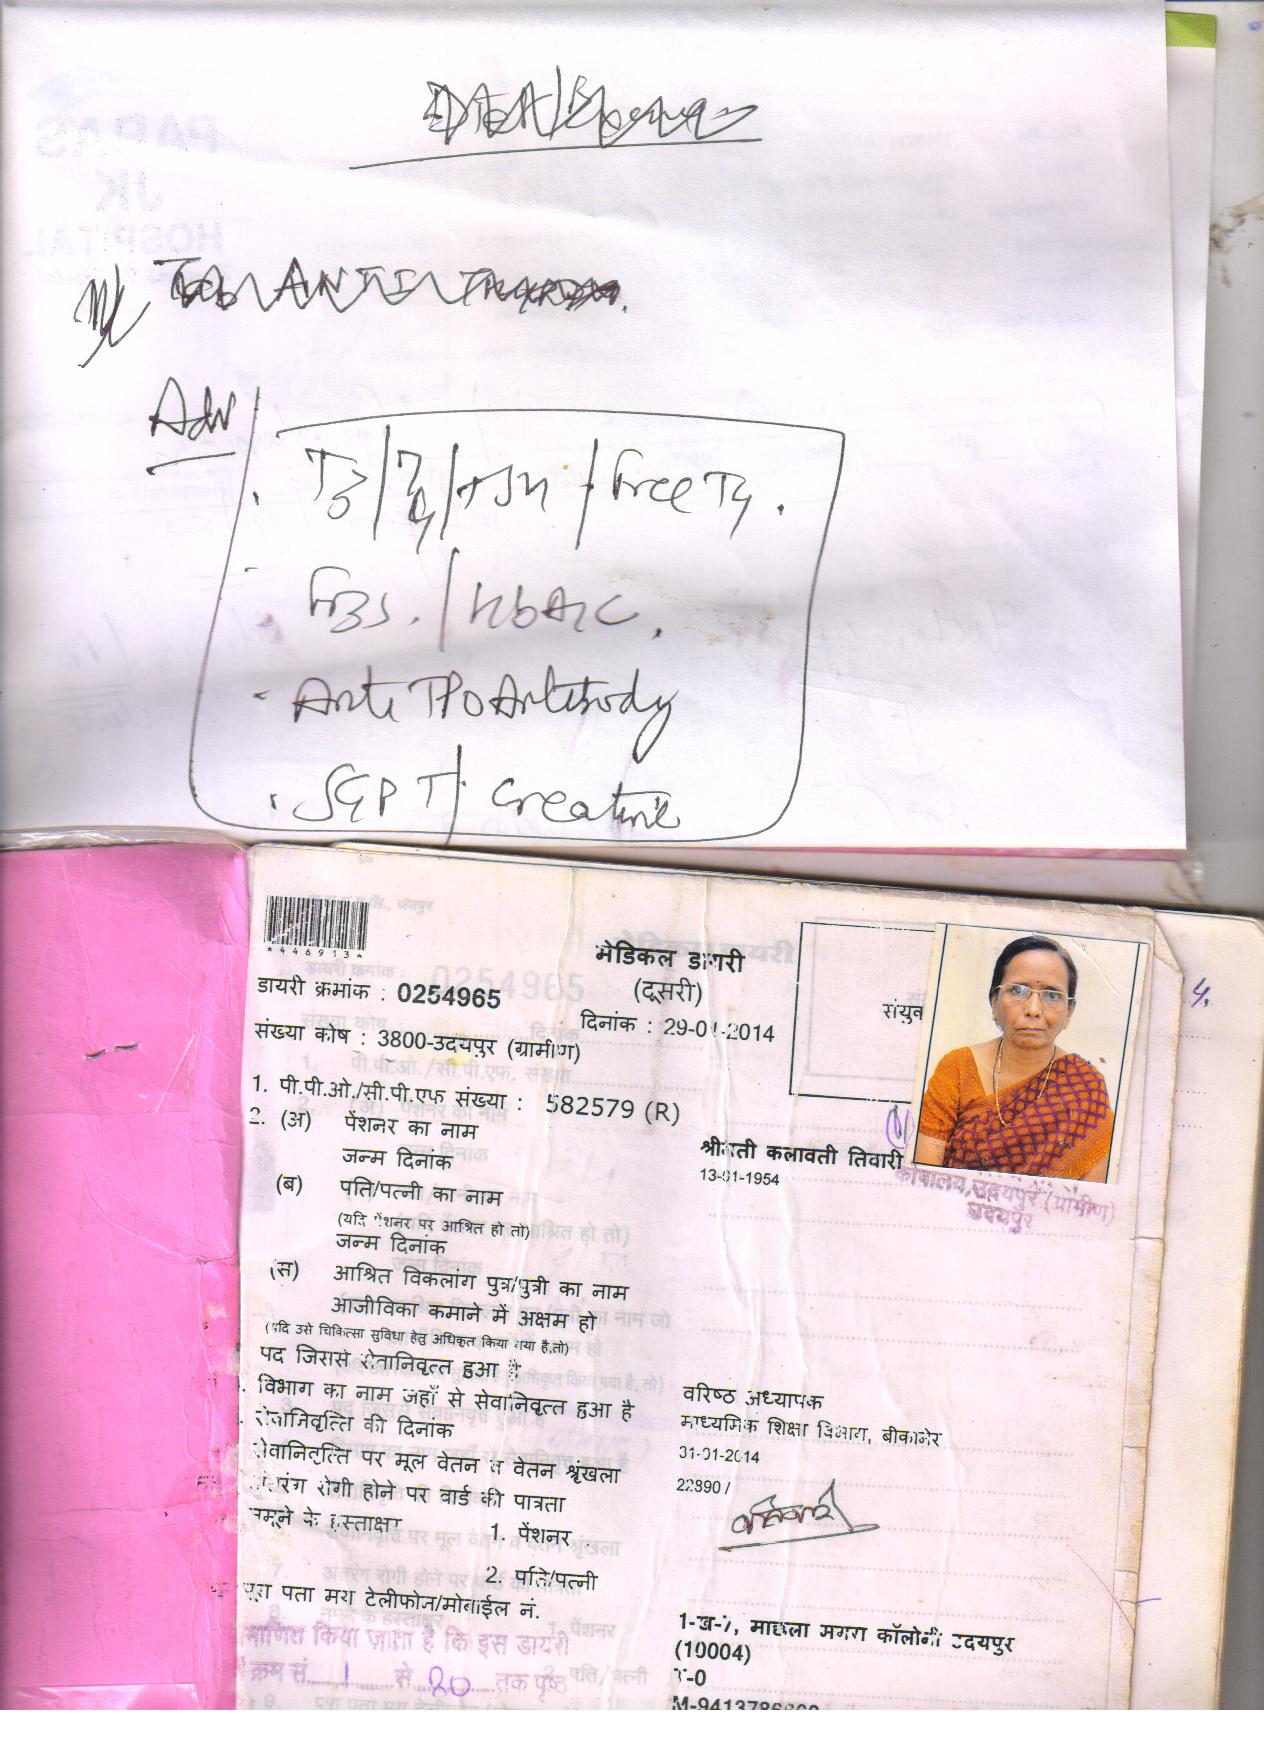 Adv
T3/T4/TSH/Free T4.
FBS./HbA1C.
- Anti TPO Antibody
. SGPT/ Creatine
*446913*
मेडिकल डायरी
(दूसरी)
डायरी क्रमांक : 0254965
दिनांक : 29-01-2014
संख्या कोष : 3800-उदयपुर (ग्रामीण)
1. पी.पी.ओ./सी.पी.एफ संख्या : 582579 (R)
2. (अ) पेंशनर का नाम श्रीमती कलावती तिवारी
जन्म दिनांक 13-01-1954
कार्यालय,उदयपुर (ग्रामीण)
उदयपुर
(ब) पति/पत्नी का नाम
(यदि पेंशनर पर आश्रित हो तो)
जन्म दिनांक
(स) आश्रित विकलांग पुत्र/पुत्री का नाम
आजीविका कमाने में अक्षम हो
(यदि उसे चिकित्सा सुविधा हेतु अधिकृत किया गया है,तो)
पद जिससे सेवानिवृत्त हुआ है वरिष्ठ अध्यापक
विभाग का नाम जहाँ से सेवानिवृत्त हुआ है माध्यमिक शिक्षा विभाग, बीकानेर
सेवानिवृत्ति की दिनांक 31-01-2014
सेवानिवृत्ति पर मूल वेतन व वेतन श्रृंखला 22890 /
अंतरंग रोगी होने पर वार्ड की पात्रता
नमूने के हस्ताक्षर 1. पेंशनर
2. पति/पत्नी
पूरा पता मय टेलीफोन/मोबाईल नं. 1-ख-7, माछला मगरा कॉलोनी उदयपुर
(10004)
T-0
प्रमाणित किया जाता है कि इस डायरी
क्रम सं. 1 से 80 तक पृष्ठ